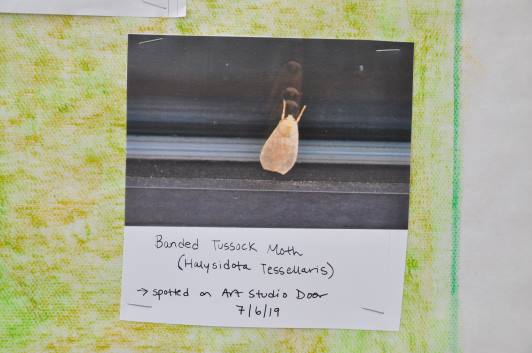 Banded Tussock Moth
(Halysidota Tessellaris)
→ spotted on Art Studio Door
7/6/19